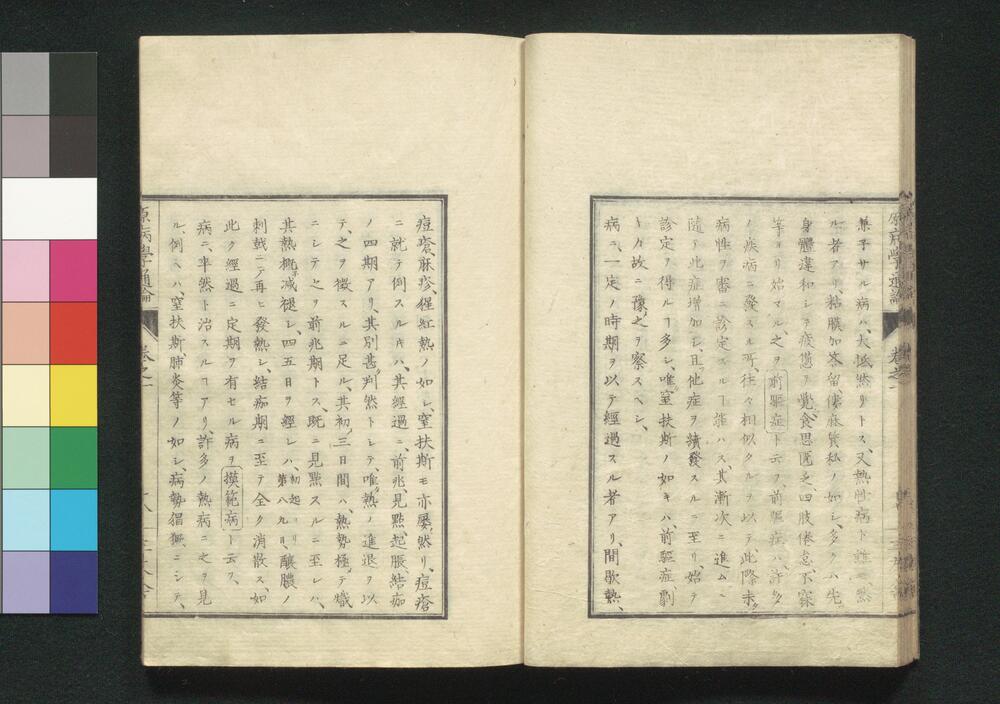 サル病ハ、大抵然リトス、又熱性病ト雖、然
ル者アリ、粘膜加答留、僂麻質私ノ如シ、多クハ先
身體違和シテ疲憊ヲ覺、食思匱乏、四肢倦怠、不寐
等ヨリ始マル、之ヲ前驅症ト云フ、前驅症ハ、許多
ノ疾病ニ發スル所、往々相似タルヲ以テ、此際未
病性ヲ審ニ診定スルヿ能ハス、其漸次ニ進ムニ
隨テ、此症增加シ、且他症ヲ續發スルニ至リ、始テ
診定ヲ得ルヿ多シ、唯窒扶斯ノ如キハ、前驅症劇
キカ故ニ、豫之ヲ察スヘシ、
病ニ、一定ノ時期ヲ以テ經過スル者アリ、間歇熱、
原病學通論
卷之一
痘瘡、麻疹、猩紅熱ノ如シ、窒扶斯モ亦屡然リ、痘瘡
ニ就テ例スルキハ、其經過ニ、前兆見點起脹、結痂
ノ四期アリ、其別甚判然トシテ、唯熱ノ進退ヲ以
テ、之ヲ徴スルニ足ル、其初三日間ハ、熱勢極テ熾
ニシテ之ヲ前兆期トス、既ニ見點スルニ至レハ、
其熱概子减褪シ、四五日ヲ經レハ、初起ヨリ第八九日、釀膿ノ
刺戟ニテ再ヒ發熱シ、結痂期ニ至テ全ク消散ス、如
此ク經過ニ定期ヲ有セル病ヲ模範病ト云フ、
病ニ、卒然ト治スルヿアリ、許多ノ熱病ニ之ヲ見
ル、例ヘハ、窒扶斯、肺炎等ノ如シ、病勢猖獗ニシテ、
原病學通論
卷之一